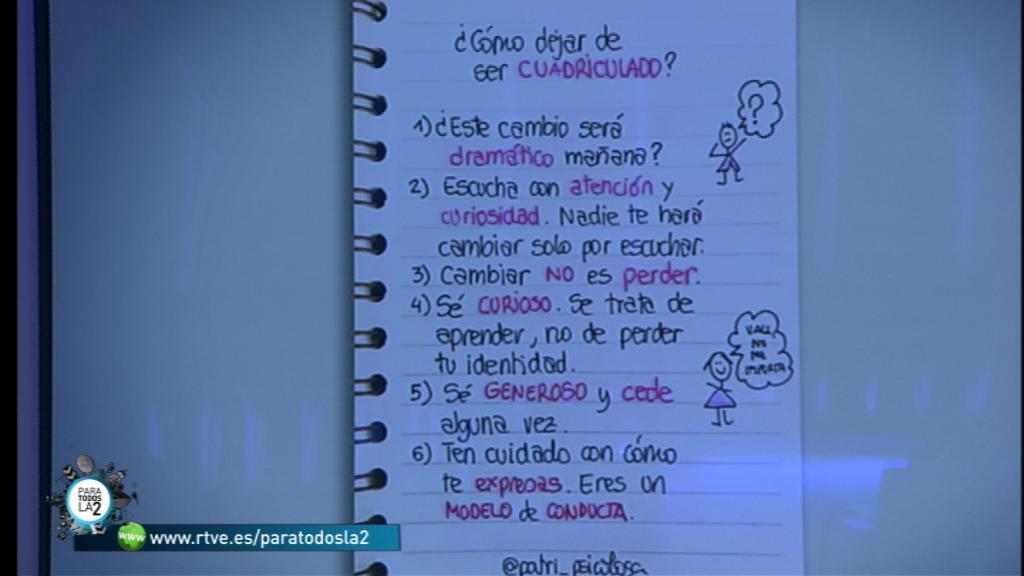 ¿Cómo dejar de
ser CUADRICULADO?
?
1) ¿Este cambio será
dramático mañana?
2) Escucha con atención y
curiosidad. Nadie te hará
cambiar solo por escuchar.
3) Cambiar NO es perder.
4) Sé CURIOSO. Se trata de
aprender, no de perder
tu identidad.
VALE
NO
ME
IMPORTA
5) Sé GENEROSO y cede
alguna vez.
6) Ten cuidado con cómo
te expresas. Eres un
MODELO de CONDUCTA.
@patri_psicologa
PARA
TODOS
LA 2
www www.rtve.es/paratodosla2